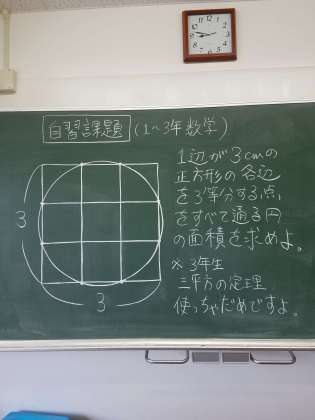 自習課題 (1~3年数学)
1辺が3cmの
正方形の各辺
を3等分する点
をすべて通る円
の面積を求めよ。
※3年生
三平方の定理
使っちゃだめですよ。
3
3